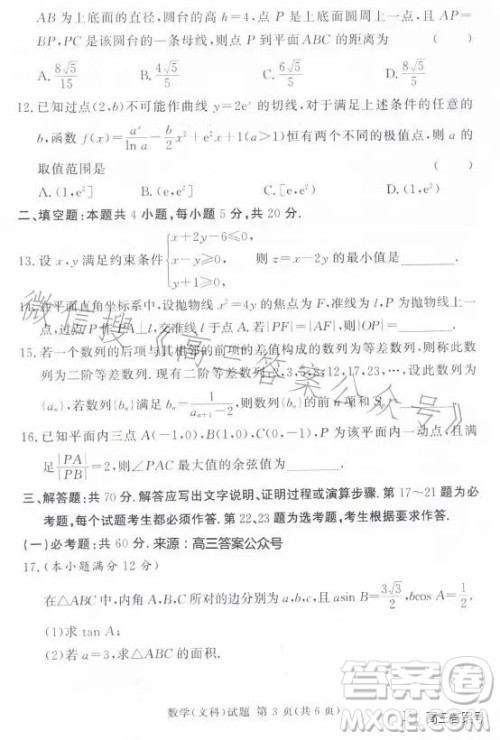 AB为上底面的直径,圆台的高h=4,点P是上底面圆周上一点,且AP=
BP,PC是该圆台的一条母线,则点P到平面ABC的距离为 ( )
A. 8√5/15 B. 4√5/5 C. 6√5/5 D. 8√5/5
12.已知过点(2,b)不可能作曲线y=2eˣ的切线,对于满足上述条件的任意的
b,函数f(x)=aˣ/ln a−(b/2)x²+x+1(a>1)恒有两个不同的极值点,则a的
取值范围是 ( )
A.(1,e²] B.(1,e²) C.[e²,+∞) D.(e²,+∞)
二、填空题:本题共4小题,每小题5分,共20分.
13.设x,y满足约束条件{x+2y−6≤0, x−y≥0, y+1≥0, 则z=x−2y的最小值是______.
在平面直角坐标系中,设抛物线x²=4y的焦点为F,准线为l,P为抛物线上一
|PF|=|AF|,则|OP|=______.
15.若一个数列的后项与其相邻的前项的差值构成的数列为等差数列,则称此数
列为二阶等差数列.现有二阶等差数列:2,3,5,8,12,17,23,…,设此数列为
{aₙ},若数列{bₙ}满足bₙ=1/(aₙ₊₁−2),则数列{bₙ}的前n项和Sₙ
16.已知平面内三点A(−1,0),B(1,0),C(0,1),P为该平面内一动点,且满
足|PA|/|PB|=2,则∠PAC最大值的余弦值为______.
三、解答题:共70分.解答应写出文字说明、证明过程或演算步骤.第17~21题为必
考题,每个试题考生都必须作答.第22、23题为选考题,考生根据要求作答.
(一)必考题:共60分. 来源:高三答案公众号
17.(本小题满分12分)
在△ABC中,内角A,B,C的对边分别为a,b,c,且asin B=3√3/2,bcos A=1/2.
(1)求tan A;
(2)若a=3,求△ABC的面积.
数学(文科)试题 第3页(共6页)
微信搜《高三答案公众号》